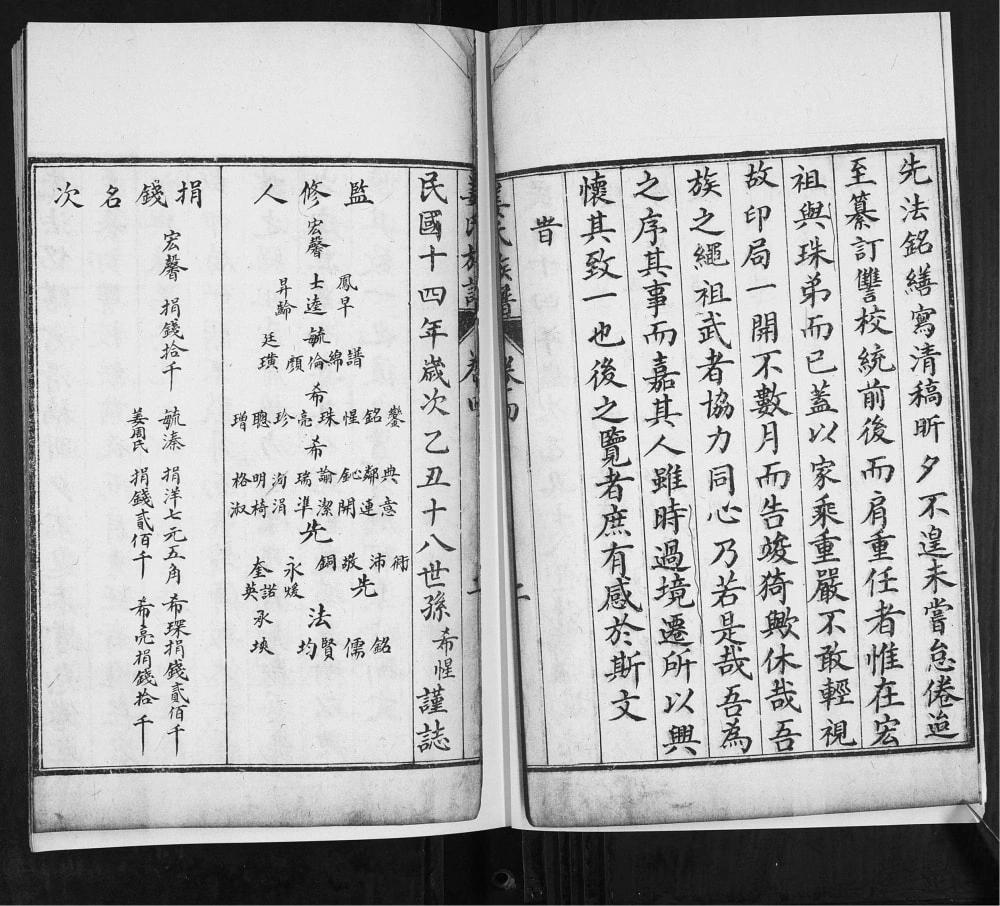 先法銘繕寫清稿昕夕不遑未嘗怠倦迨
至纂訂讐校統前後而肩重任者惟在宏
祖與珠弟而已蓋以家乘重嚴不敢輕視
故印局一開不數月而告竣猗歟休哉吾
族之繩祖武者協力同心乃若是哉吾為
之序其事而嘉其人雖時過境遷所以興
懷其致一也後之覽者庶有感於斯文
旹
姜氏族譜
民國十四年歲次乙丑十八世孫希惺謹誌
監修人
宏馨
鳳早
士逵
昇齡
毓
譜
綿
倫
顏
廷
璜
希
鑾
銘
惺
珠
亮
珍
聰
璔
希
典意
鄰連
開
諭潔
瑞準
洧涓
明椅
格淑
先
沛
敬
銅
永煖
諾
奎英
先法
銘
儒
賢
均
承
埉
捐錢名次
宏馨 捐錢拾千
毓溱 捐洋七元五角
希琛捐錢貳佰千
姜周氏 捐錢貳佰千
希亮捐錢拾千